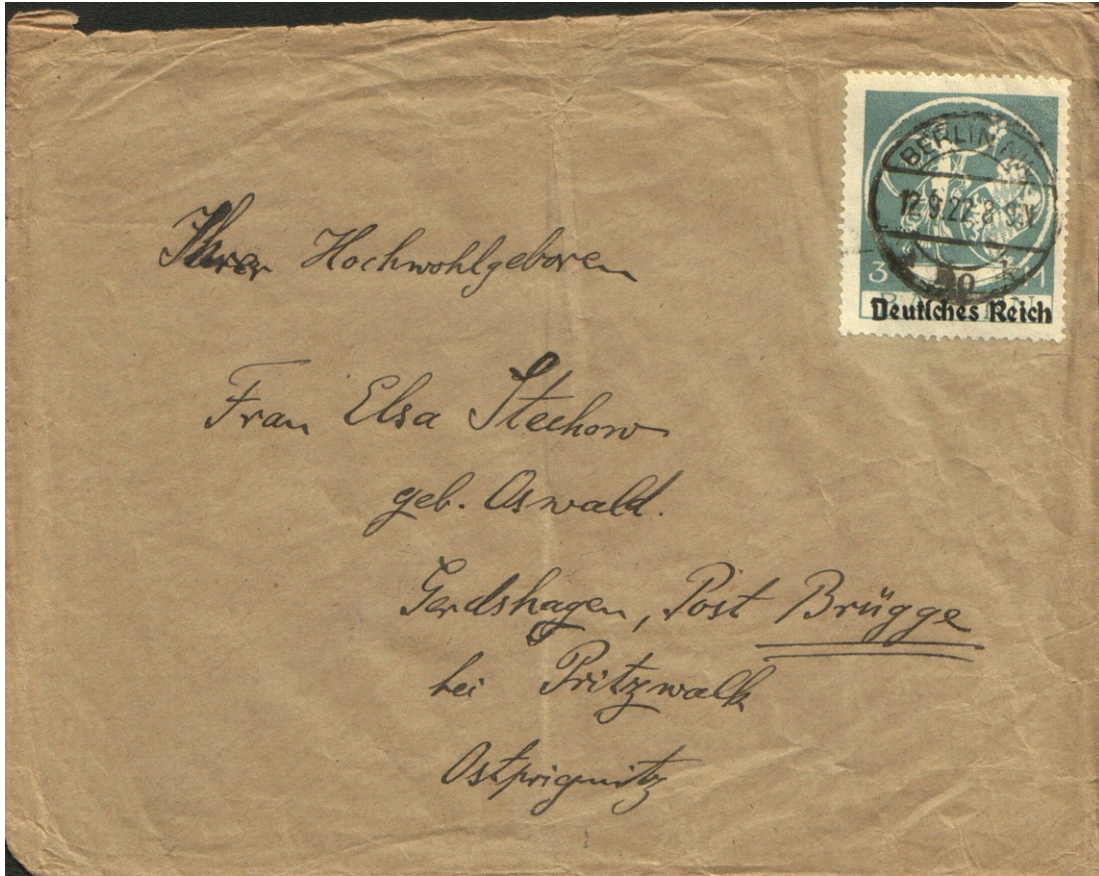 BERLIN
12.9.22.8-9.V.
3 M
BAYERN
Deutsches Reich
Ihrer Hochwohlgeboren
Frau Elsa Stechow
geb. Oswald.
Gerdshagen, Post Brügge
bei Pritzwalk
Ostprignitz